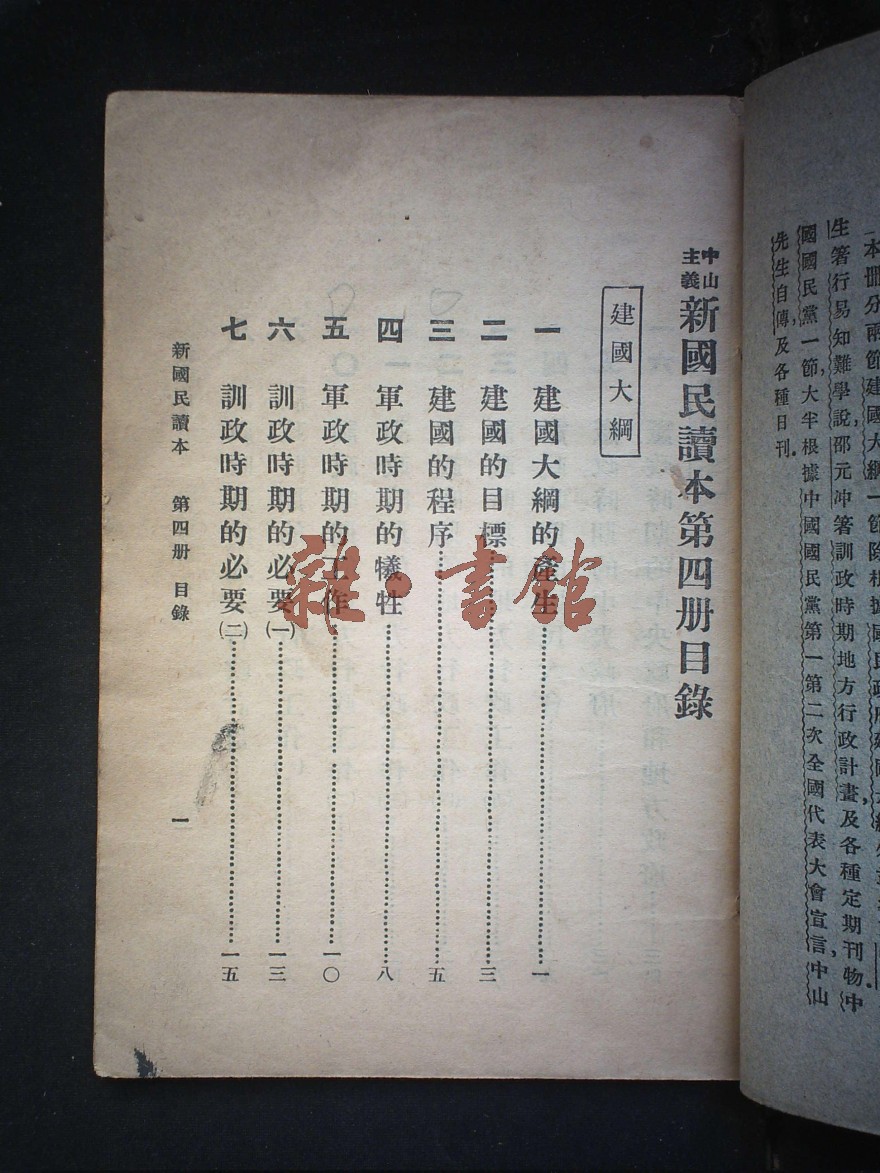 本册分兩節建國大綱一節除根據國民政府建國大綱外
生箸行易知難學說，邵元冲箸訓政時期地方行政計畫，及各種定期刊物。中
國國民黨一節，大半根據中國國民黨第一第二次全國代表大會宣言，中山
先生自傳，及各種日刊。
中山主義新國民讀本第四册目錄
建國大綱
一 建國大綱的產生……一
二 建國的目標……三
三 建國的程序……五
四 軍政時期的犧牲……八
五 軍政時期的工作……一〇
六 訓政時期的必要(一)……一三
七 訓政時期的必要(二)……一五
新國民讀本 第四册 目錄
一
雜·書館